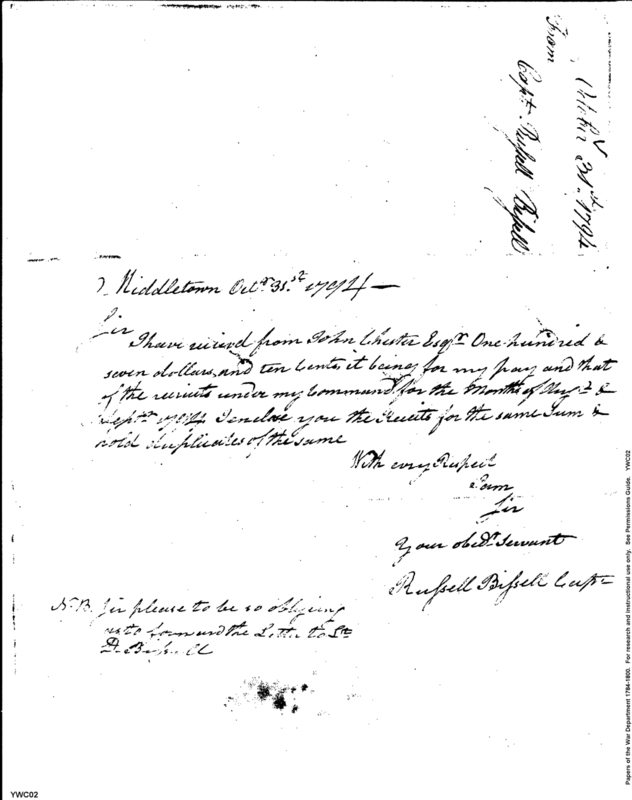 October 31st 1794
From
Capt. Russell Bissell
Middletown Octr. 31st 1794 —
Sir
I have recieved from John Chester Esqr. One hundred &
seven dollars, and ten Cents it being for my pay and that
of the recruits under my Command for the Months of Augt. &
Septr. 1794 I enclose you the Reciets for the same Sum &
hold duplicates of the same
With every Respect
I am
Sir
Your obedt. Servant
Russell Bissell Capt
N.B. Sir please to be so obliging
as to forward the Letter to Lt.
D. Bissell
YWC02
Papers of the War Department 1784-1800. For research and instructional use only. See Permissions Guide. YWC02